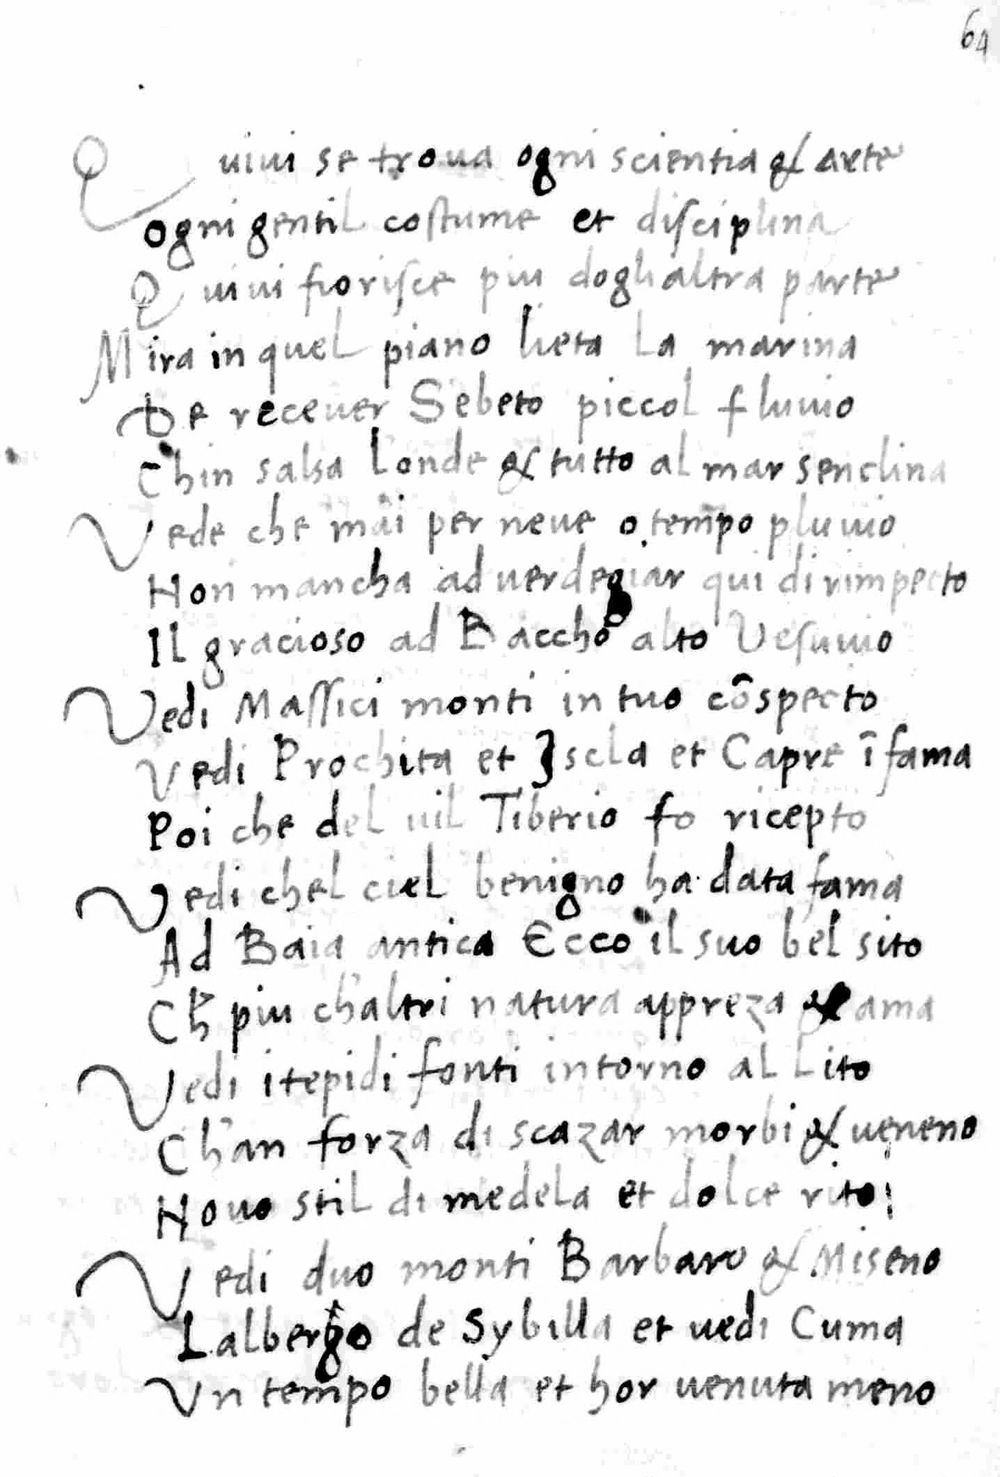 64
Quiui se troua ogni scientia & arte
ogni gentil costume et disciplina
Quiui fiorisce piu doglialtra parte
Mira in quel piano lieta la marina
De receuer Sebeto piccol fluuio
Chin salsa Londe & tutto al mar senclina
Vede che mai per neue o tempo pluuio
Non mancha ad uerdegiar qui di rimpecto
Il gracioso ad Baccho alto Vesuuio
Vedi Massici monti in tuo cōspecto
Vedi Prochita et Iscla et Capre ī fama
Poi che del uil Tiberio fo ricepto
Vedi chel ciel benigno ha data fama
Ad Baia antica Ecco il suo bel sito
Ch piu ch'altri natura appreza & ama
Vedi i tepidi fonti intorno al Lito
Ch'an forza di scazar morbi & ueneno
Nouo stil di medela et dolce rito:
Vedi duo monti Barbaro & Miseno
Lalbergo de Sybilla et uedi Cuma
Vn tempo bella et hor uenuta meno